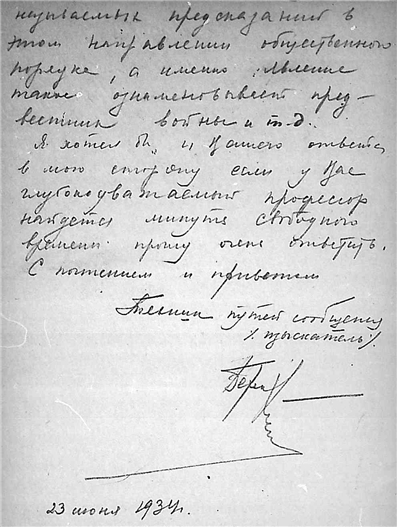 называемых предсказаний в
этом направлении общественного
порядке, а именно: явление
такое ознаменовывает пред-
вестник войны и т.д.
Я хотел бы и Вашего ответа
в мою сторону если у Вас
глубокоуважаемый профессор
найдется минута свободного
времени прошу очень ответить.
С почтением и приветом
Техник путей сообщения
/. изыскатель /.
23 июня 1934 г.